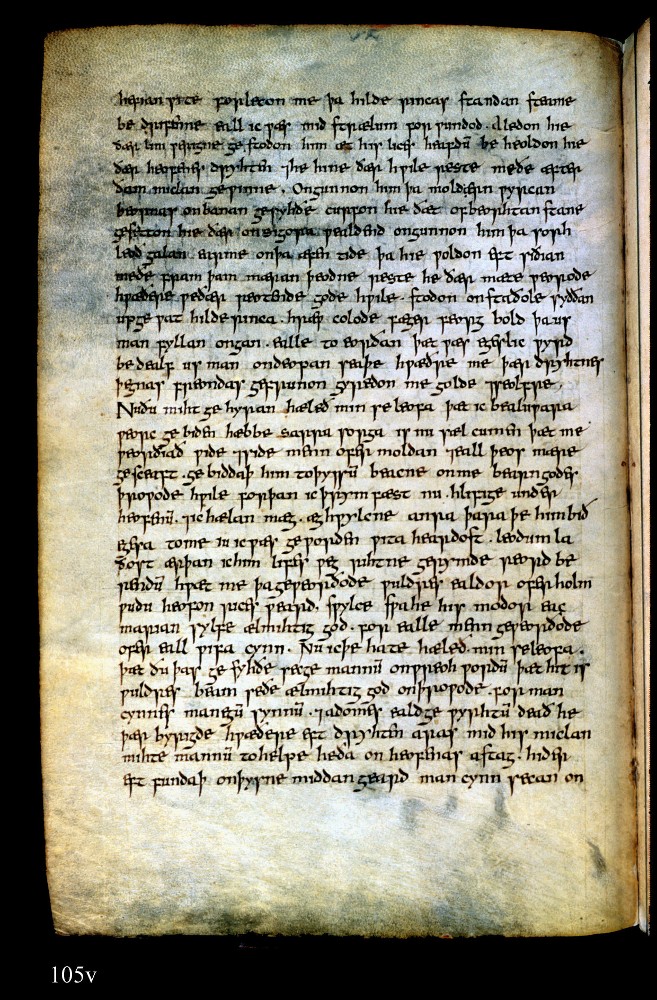 hefian wite forleton me þa hilde rincas standan steame
be drifenne eall ic wæs mid strælum forwundod. Aledon hie
ðær lim werigne ge stodon him æt his lices heafdū be heoldon hie
ðær heofenes dryhten ⁊he hine ðær hwile reste meðe æfter
ðam miclan gewinne. Ongunnon him þa moldærn wyrcan
beornas on banan gesyhðe curfon hie ðæt of beorhtan stane
gesetton hie ðær on sigora wealdend ongunnon him þa sorh
leoð galan earme on þa æfen tide þa hie woldon eft siðian
meðe fram þam mæran þeodne reste he ðær mæte weorode
hwæðere we ðær reotende gode hwile. stodon on staðole syððan
up ge wat hilde rinca. hræw colode fæger feorg bold þa us
man fyllan ongan. ealle to eorðan þæt wæs egeslic wyrd
be dealf us man on deopan seaþe hwæðre me þær dryhtnes
þegnas freondas gefrunon gyredon me golde ⁊seolfre.
Nu ðu miht ge hyran hæleð min se leofa þæt ic bealuwara
weorc ge biden hæbbe sarra sorga is nu sæl cumen þæt me
weorðiað wide ⁊side menn ofer moldan ⁊eall þeos mære
gesceaft. ge biddaþ him to þyssū beacne on me bearn godes
þrowode hwile forþan ic þrym fæst nu. hlifige under
heofenū. ⁊ic hælan mæg. æghwylcne anra þara þe him bið
egesa to me iu ic wæs ge worden wita heardost. leodum la
ðost ær þan ic him lifes weg rihtne gerymde reord be
rendū hwæt me þa geweorðode wuldres ealdor ofer holm
wudu heofon rices weard. swylce swa he his modor eac
marian sylfe ælmihtig god. for ealle menn geweorðode
ofer eall wifa cynn. Nu ic þe hate hæleð. min se leofa.
þæt ðu þas ge syhðe secge mannū on wreoh wordū þæt hit is
wuldres beam se ðe ælmihtig god on þrowode. for man
cynnes manegū synnū. ⁊adomes ealdge wyrhtū deað he
þær byrigde hwæðere eft dryhten aras mid his miclan
mihte mannū to helpe he ða on heofenas astag. hider
eft fundaþ on þysne middan geard man cynn secan on
105v